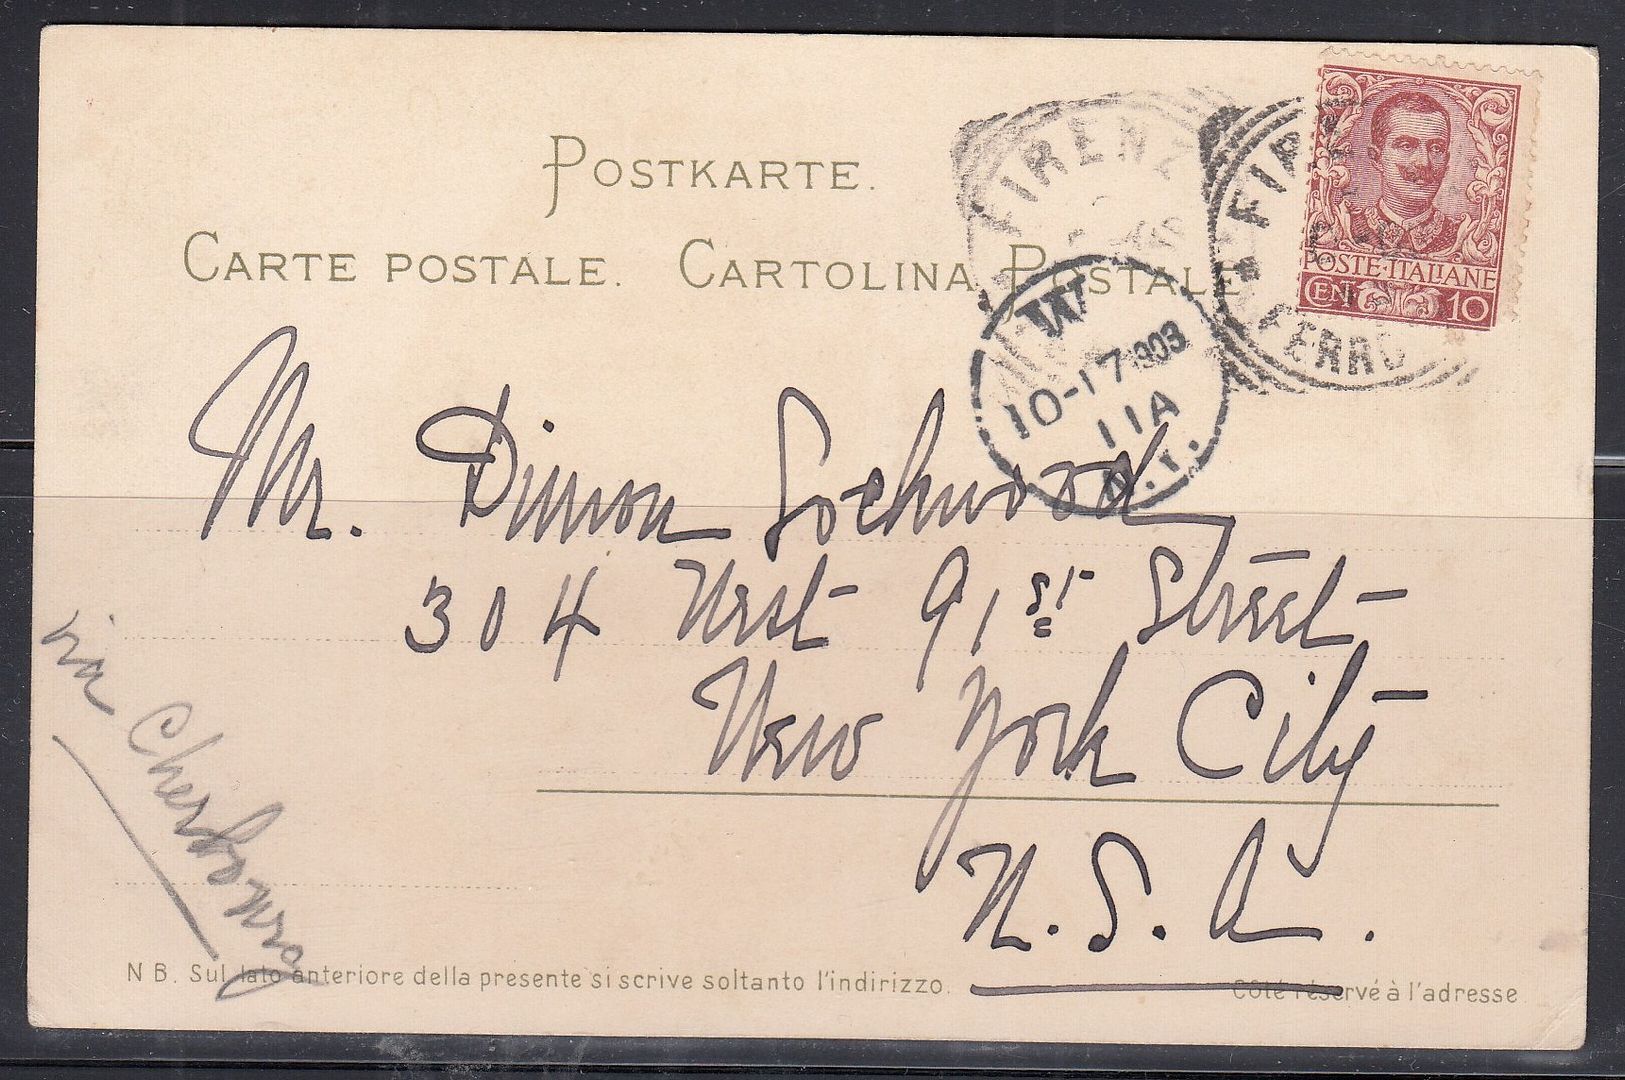 POSTKARTE.
CARTE POSTALE. CARTOLINA POSTALE
FIRENZ
FIR
FERRO
POSTE·ITALIANE
CEN 10
W
10-17 1903
11A
N.Y.
Mr. Dimon Lockwood
304 West 91st Street
New York City
U.S.A.
via Cherbourg
N B. Sul lato anteriore della presente si scrive soltanto l'indirizzo.
Côté réservé à l'adresse